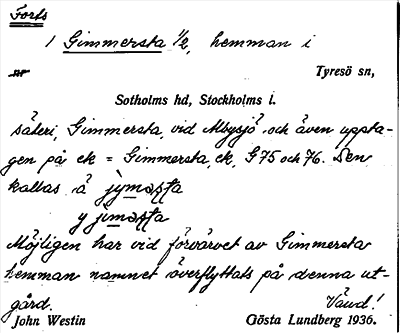 Forts
1 Gimmersta 1/2, hemman i
Tyresö sn,
Sotholms hd, Stockholms l.
säteri, Gimmersta, vid Albysjö och även uppta-
gen på ek = Gimmersta, ek, G 75 och 76. Den
kallas
Möjligen har vid förvärvet av Gimmersta
hemman namnet överflyttats på denna ut-
gård. Vänd!
John Westin Gösta Lundberg 1936.